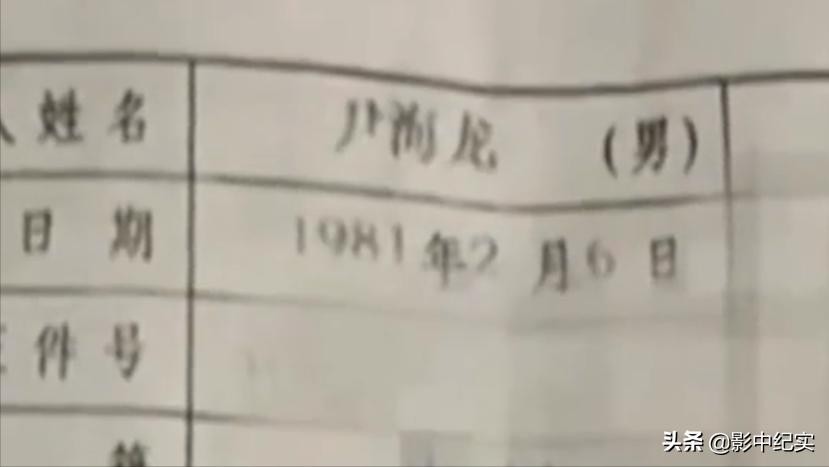 人姓名 尹海龙 (男)
日期 1981年2月6日
件号
头条 @影中纪实